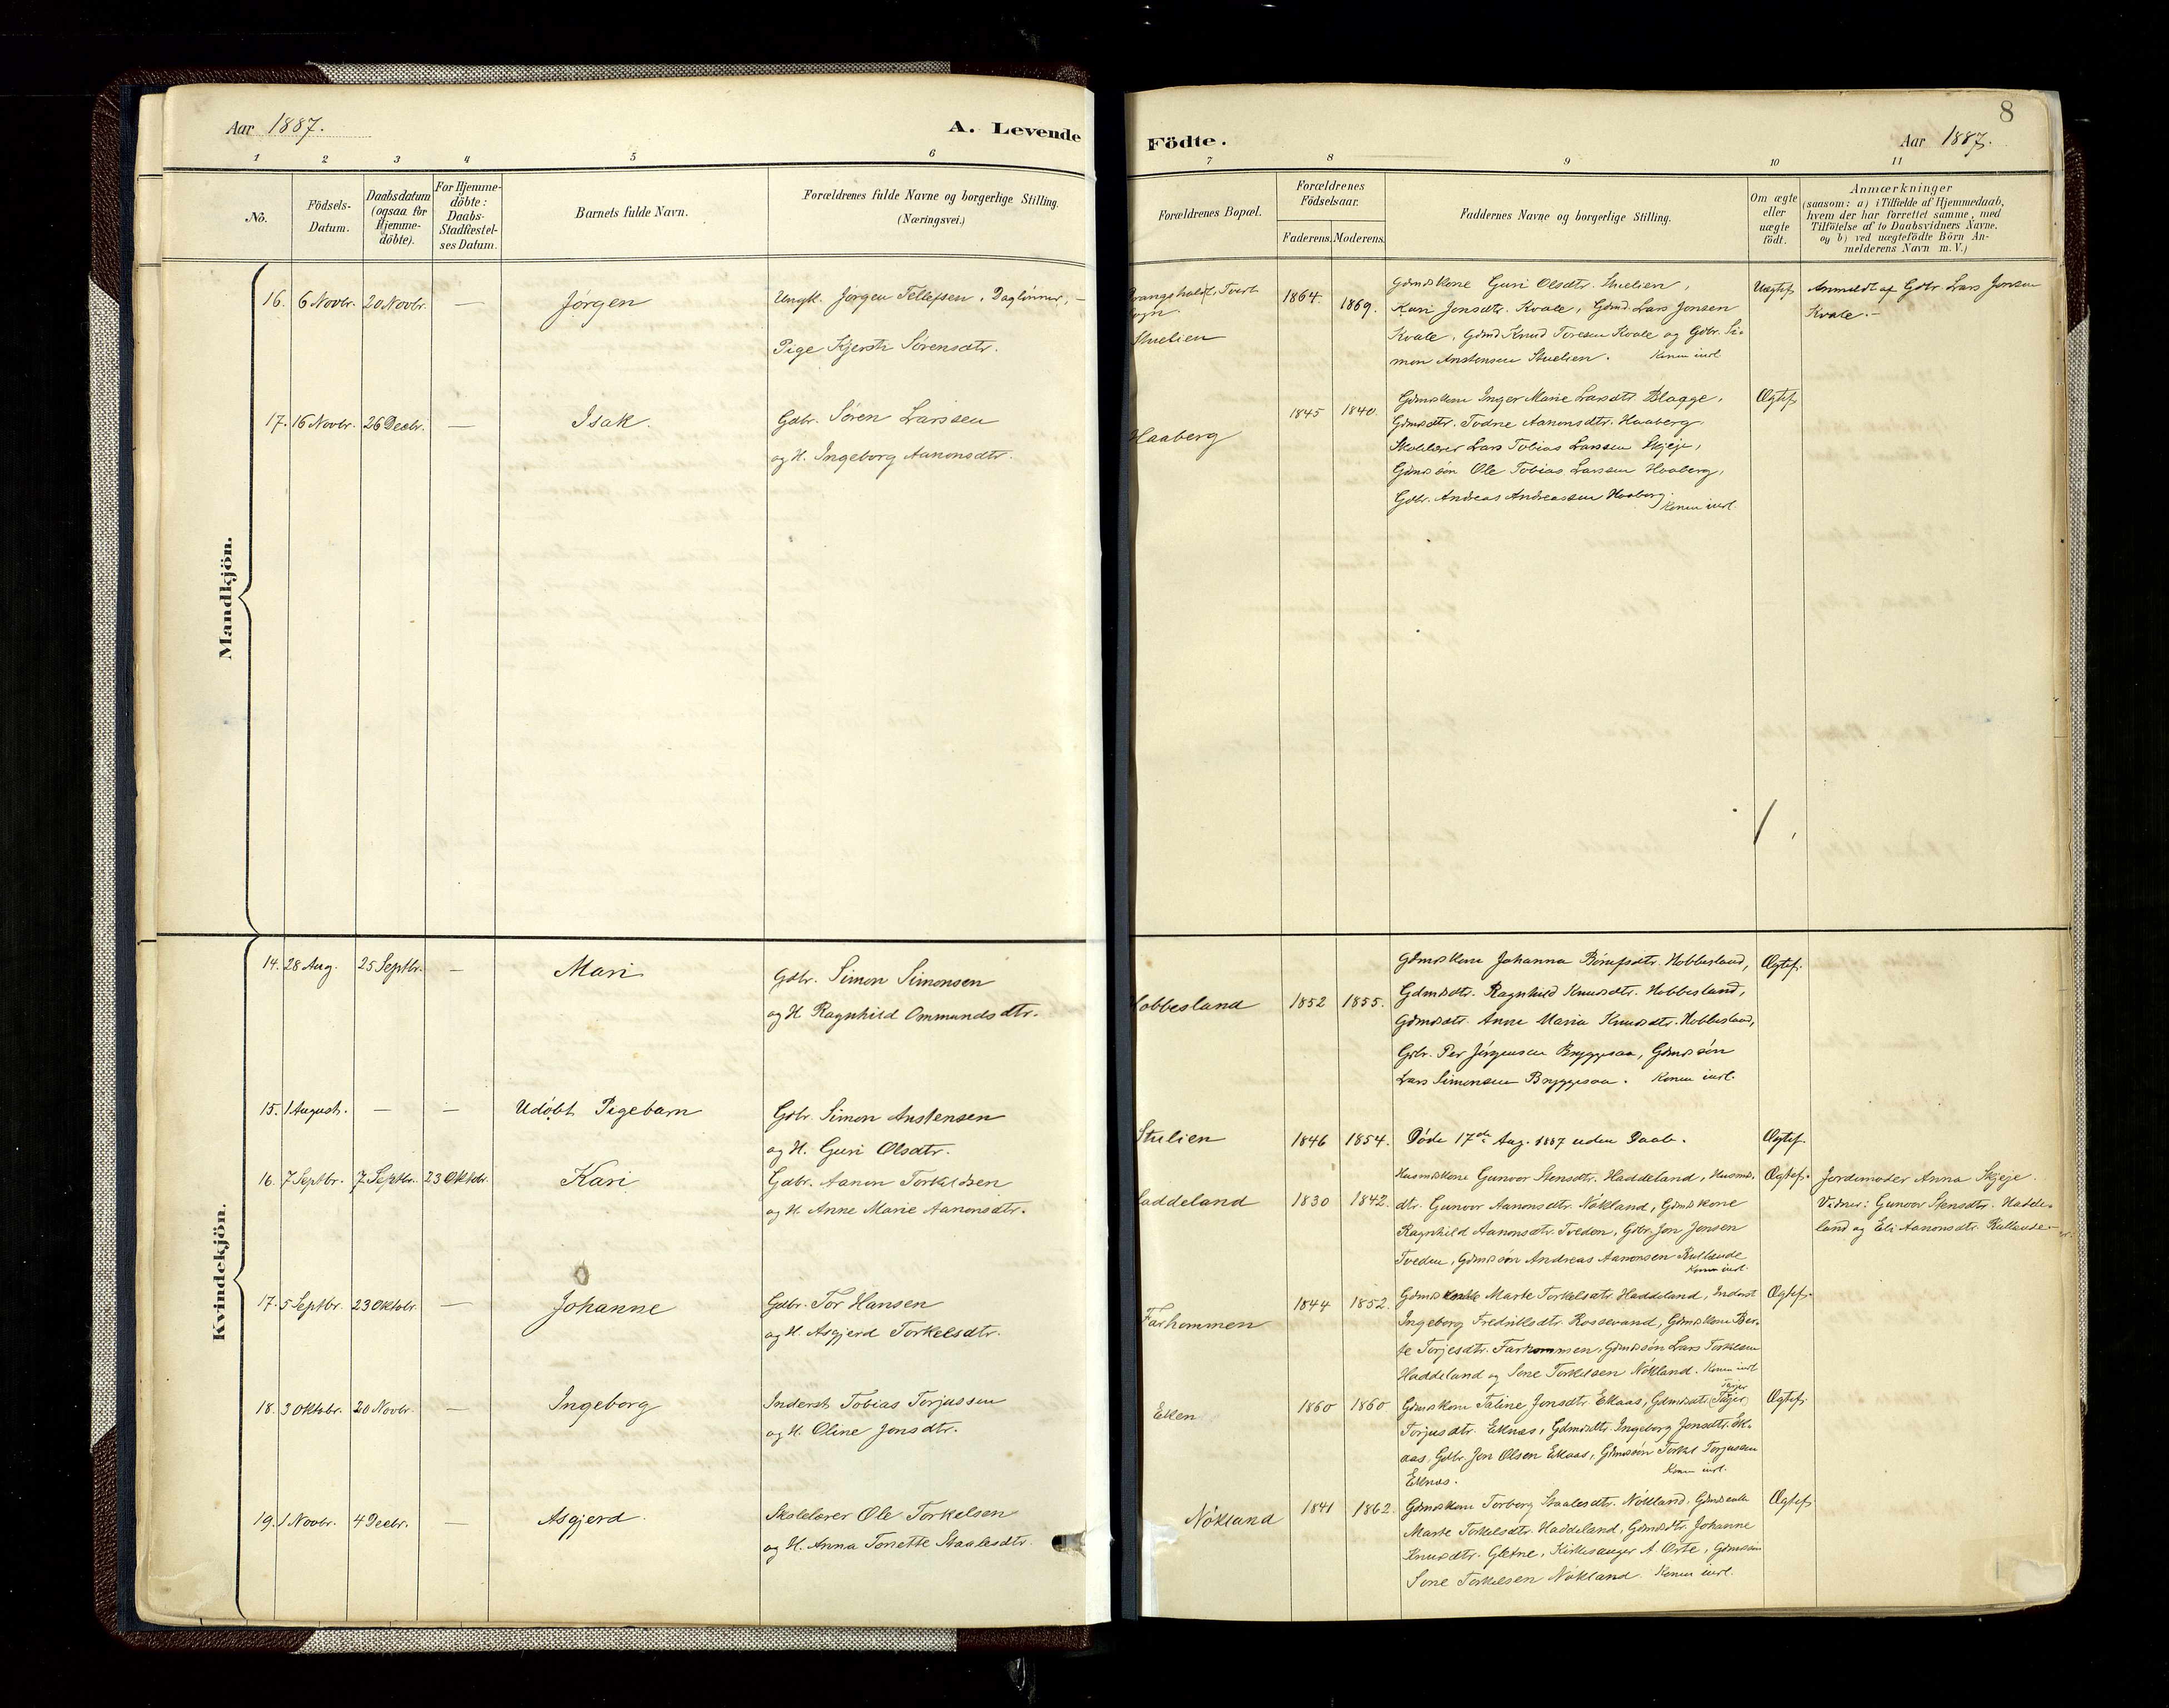 Aar 1887.
A. Levende
Födte.
Aar 1887.
8
1 2 3 4 5 6 7 8 9 10 11
No.
Födsels-
Datum.
Daabsdatum
(ogsaa for
Hjemme-
döbte).
For Hjemme-
döbte:
Daabs-
Stadfæstel-
ses Datum.
Barnets fulde Navn.
Forældrenes fulde Navne og borgerlige Stilling.
(Næringsvei.)
Forældrenes Bopæl.
Forældrenes
Födselsaar.
Faderens. Moderens.
Faddernes Navne og borgerlige Stilling.
Om ægte
eller
uægte
födt.
Anmærkninger
(saasom: a) i Tilfælde af Hjemmedaab,
hvem der har forrettet samme, med
Tilföielse af to Daabsvidners Navne.
og b) ved uægtefödte Börn An-
melderens Navn m. V.)
Mandkjön.
16. 6 Novbr. 20 Novbr. — Jørgen
Ungk. Jørgen Tellefsen, Daglønner, —
Pige Kjersti Sørensdtr.
Stuelien
1864. 1869.
Gdmdskone Guri Olsdtr. Stuelien,
Kari Jonsdtr. Kvale, Gdmd. Lars Jonsen
Kvale, Gdmd. Knud Toresen Kvale og Gdbr. Si-
mon Anstensen Stuelien. Konen indl.
Uægtef.
Anmeldt af Gdbr. Lars Jonsen
Kvale.—
17. 16 Novbr. 26 Decbr. — Isak.
Gdbr. Søren Larssen
og H. Ingeborg Aanonsdtr.
Haaberg
1845 1840.
Gdmdskone Inger Marie Larsdtr. Blagge,
Gdmdsdtr. Todne Aanonsdtr. Haaberg.
Skolelærer Lars Tobias Larssen Skjeje,
Gdmdssøn Ole Tobias Larssen Haaberg,
Gdbr. Andreas Andreassen Haaberg.
Konen indl.
Ægtef.
Kvindekjön.
14. 28 Aug. 25 Septbr. — Mari
Gdbr. Simon Simonsen
og H. Ragnhild Ommundsdtr.
Hobbesland
1852 1855.
Gdmdskone Johanna Hobbesland,
Gdmdsdtr. Ragnhild Knudsdtr. Hobbesland,
Gdmdsdtr. Anne Maria Knudsdtr. Hobbesland,
Gdbr. Per Jørgensen Bryggesaa, Gdmdssøn
Lars Simonsen Bryggesaa. Konen indl.
Ægtef.
15. 1 August. — — Udøbt Pigebarn
Gdbr. Simon Anstensen
og H. Guri Olsdtr.
Stulien
1846 1854.
Døde 17de Aug. 1887 uden Daab.
Ægtef.
16. 7 Septbr. 7 Septbr. 23 Oktobr. Kari
Gdbr. Aanon Torkildsen
og H. Anne Marie Aanonsdtr.
Haddeland
1830 1842.
Husmdskone Gunvor Stensdtr. Haddeland, Husmds-
dtr. Gunvor Aanonsdtr. Nökland, Gdmdskone
Ragnhild Aanonsdtr. Tveden, Gdbr. Jon Jonsen
Tveden, Gdmdssøn Andreas Aanonsen Kullende
Konen indl.
Ægtef.
Jordemoder Anna Skjeje.
Vidner: Gunvor Stensdtr. Hadde-
land og Eli Aanonsdtr. Kullende
17. 5 Septbr. 23 Oktobr. — Johanne
Gdbr. Tor Hansen
og H. Asgjerd Torkelsdtr.
Farhommen
1844 1852.
Marte Torkelsdtr. Haddeland, Inderst
Ingeborg Fredriksdtr. Rossevand, Gdmdskone Ber-
te Torjesdtr. Farhommen, Gdmdssøn Lars Torkelsen
Haddeland og Sone Torkelsen Nökland. Konen indl.
Ægtef.
18. 3 Oktobr. 20 Novbr. — Ingeborg
Inderst Tobias Torjussen
og H. Oline Jonsdtr.
Eken
1860 1860
Gdmdskone Taline Jonsdtr. Ekaas, Gdmdsdtr.
Torjusdtr. Eknes, Gdmdsdtr. Ingeborg Jonsdtr. Ek-
aas, Gdbr. Jon Olsen Ekaas, Gdmdssøn Torkel Torjussen
Eknes. Konen indl.
Ægtef.
19. 1 Novbr. 4 Decbr. — Asgjerd
Skolelærer Ole Torkelsen
og H. Anna Tonette Staalesdtr.
Nökland
1841 1862.
Gdmdskone Torborg Staalesdtr. Nökland, Gdmdsenke
Marte Torkelsdtr. Haddeland, Gdmdsdtr. Johanne
Knudsdtr. Gletne, Kirkesanger A. Orte, Gdmdssøn
Sone Torkelsen Nökland. Konen indl.
Ægtef.